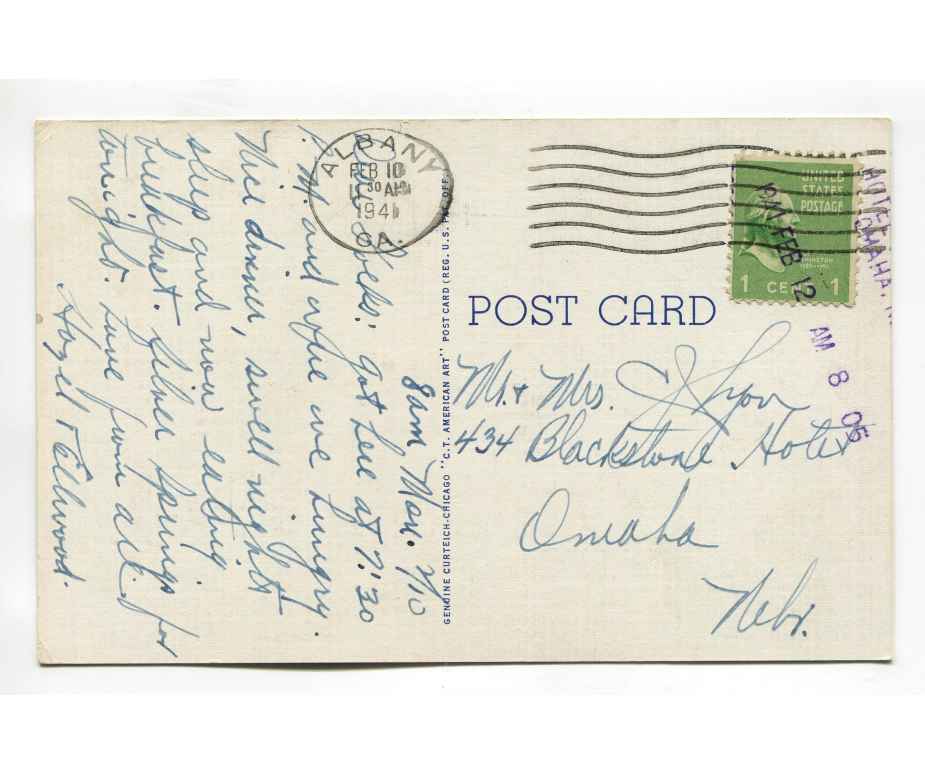 8 am Mon. 2/10
Folks: Got here at 7:30
P.M. and were we hungry.
Nice dinner, swell nights
sleep and now eating
breakfast. Silver Springs for
tonight. Love from all.
Hazel Fellwood.
ALBANY
FEB 10
11 30 AM
1941
GA.
GENUINE CURTEICH-CHICAGO "C.T. AMERICAN ART" POST CARD (REG. U.S. PAT. OFF.)
POST CARD
UNITED
STATES
POSTAGE
1 CENT 1
OMAHA, N
FEB 12 AM 8 05
Mr. & Mrs. J Lyon
434 Blackstone Hotel
Omaha
Nebr.